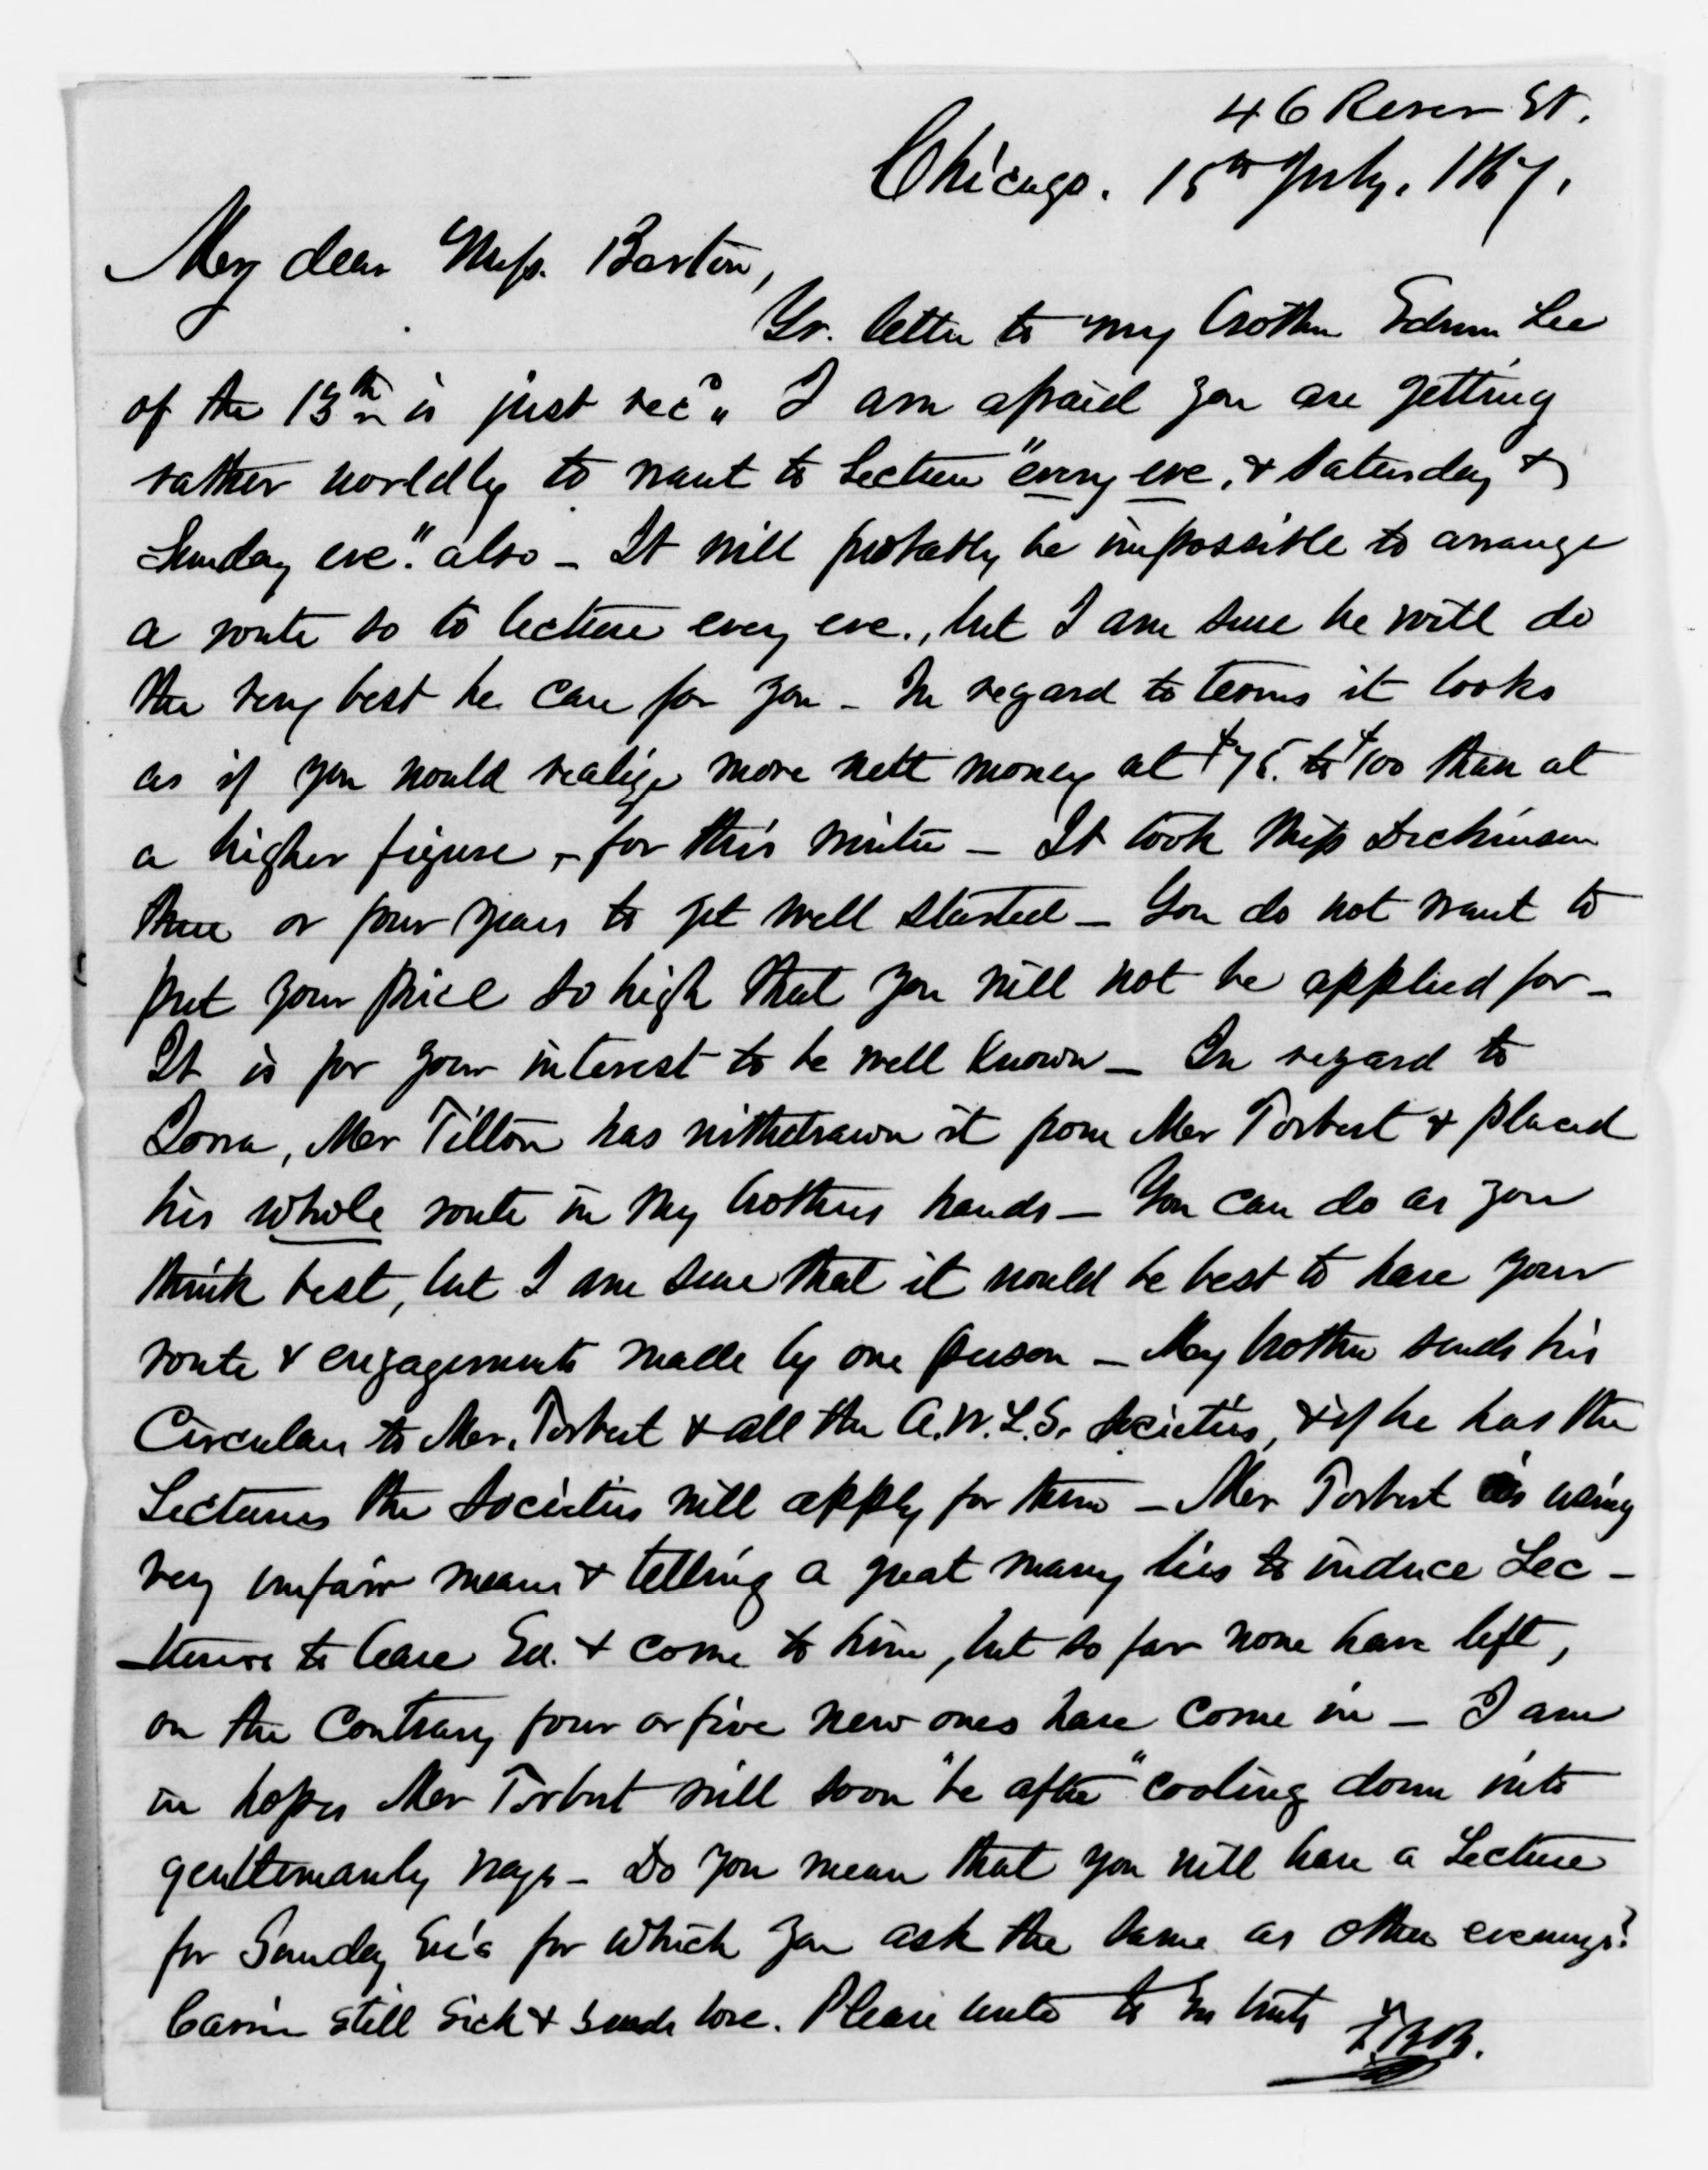 46 River St.
Chicago. 15th July. 1867.
My dear Miss. Barton,
Yr. letter to my brother Edwin Lee
of the 13th is just rec'd. I am afraid you are getting
rather worldly to want to Lecture "every eve, & Saturday &
Sunday eve." also - It will probably be impossible to arrange
a route so to lecture every eve., but I am sure he will do
the very best he can for you - In regard to terms it looks
as if you would realize more nett money at $75. to $100 than at
a higher figure, - for this winter - It took Miss Dickinson
three or four years to get well started - You do not want to
put your price so high that you will not be applied for -
It is for your interest to be well known - In regard to
Iowa, Mr Tilton has withdrawn it from Mr Torbert & placed
his whole route in my brothers hands - You can do as you
think best, but I am sure that it would be best to have your
route & engagements made by one person - My brother sends his
Circulars to Mr. Torbert & all the A.W.L.S. Societies, & if he has the
Lectures the Societies will apply for them - Mr Torbert is using
very unfair means & telling a great many lies to induce Lec-
-turers to leave Ed. & come to him, but so far none have left,
on the contrary four or five new ones have come in - I am
in hopes Mr Torbert will soon "be after" cooling down into
gentlemanly ways - Do you mean that you will have a Lecture
for Sunday Eve's for which you ask the same as other evenings?
Carrie still sick & sends love. Please write to